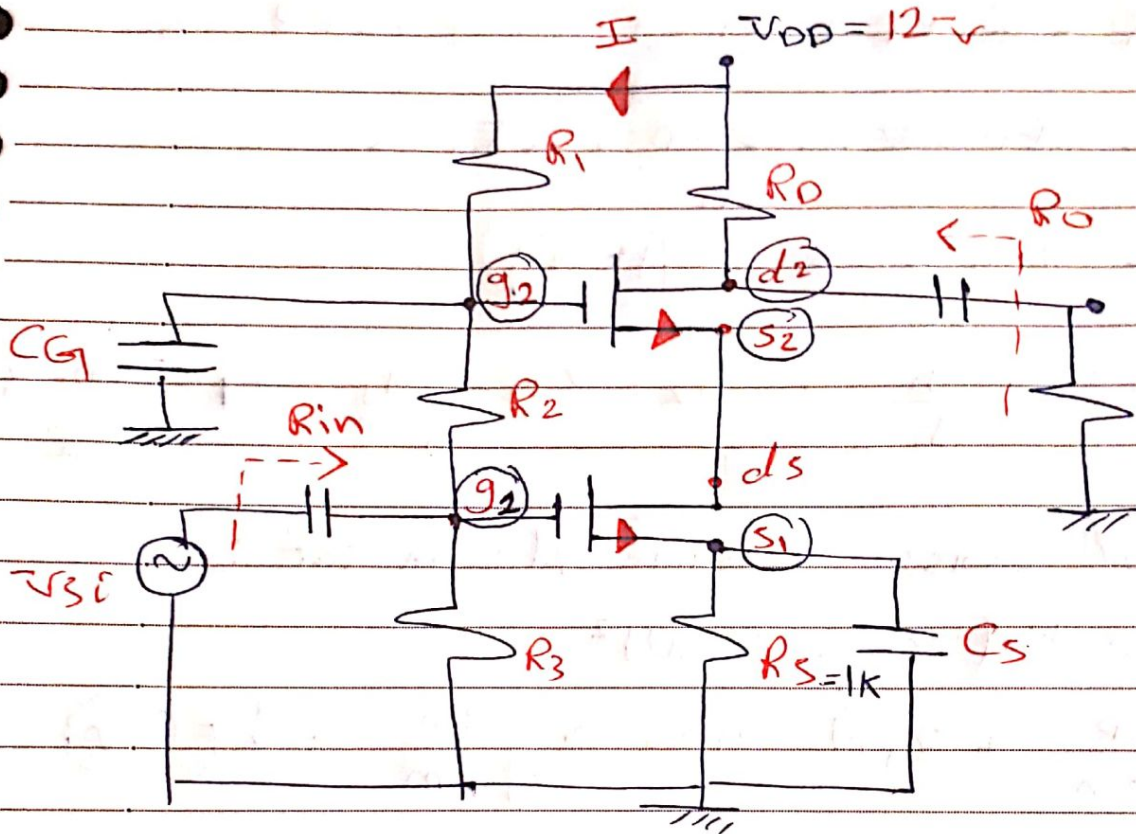 I
VDD = 12 v
R1
RD
Ro
g2
d2
s2
CG
R2
Rin
ds
g1
s1
vsi
R3
Rs = 1K
Cs